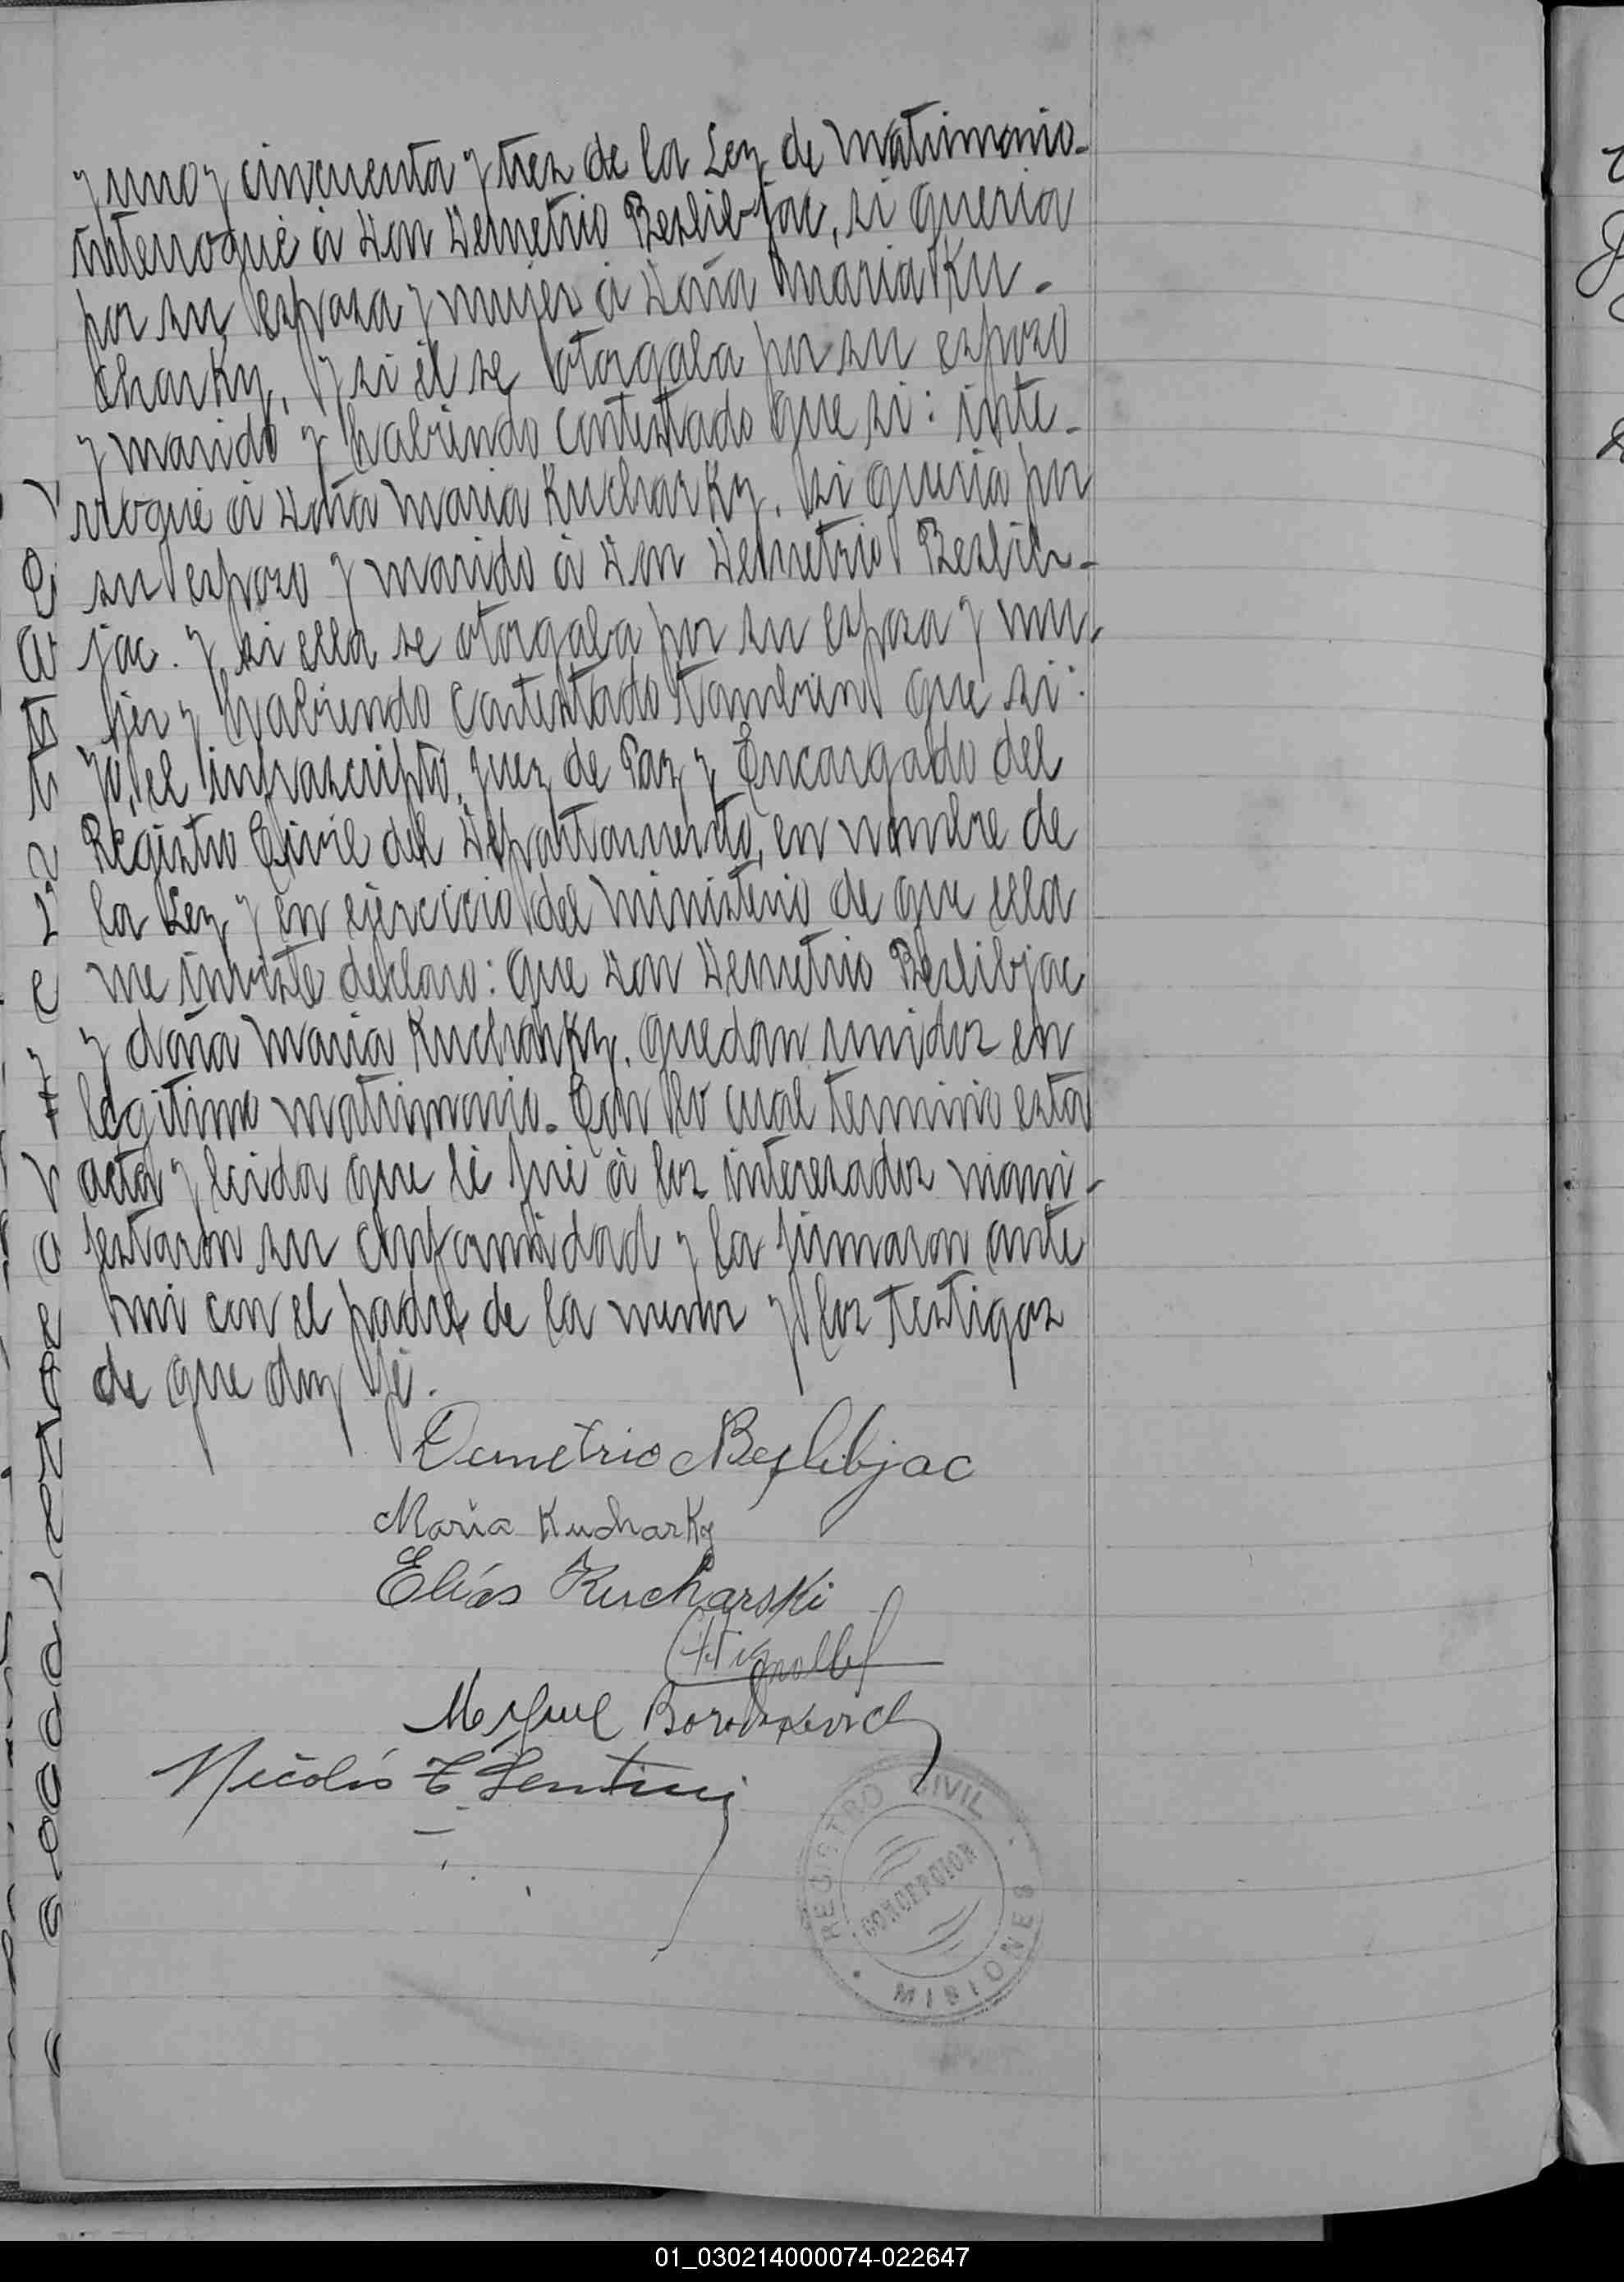 y uno y cincuenta y tres de la Ley de Matrimonio
interrogué á Don Demetrio Beslibjac, si queria
por su esposa y mujer á Doña Maria Ku-
charky, y si él se otorgaba por su esposo
y marido y habiendo contestado que si: inte-
rrogué á Doña Maria Kucharky. si queria por
su esposo y marido á Don Demetrio Beslib-
jac. y si ella se otorgaba por su esposa y mu-
jer y habiendo contestado tambien que si:
yo, el infrascripto, Juez de Paz y Encargado del
Registro Civil del Departamento, en nombre de
la Ley y en ejercicio del ministerio de que ella
me inviste declaro: que Don Demetrio Beslibjac
y doña Maria Kucharky. quedan unidos en
legitimo matrimonio. Con lo cual termino esta
acta y leida que lé fué á los interesados mani-
festaron su conformidad y la firmaron ante
mi con el padre de la menor y los testigos
de que doy fé.
Demetrio Beslibjac
Maria Kucharky
Elías Kucharski
Miguel
Nicolás
REGISTRO CIVIL
CONCEPCION
MISIONES
01_030214000074-022647